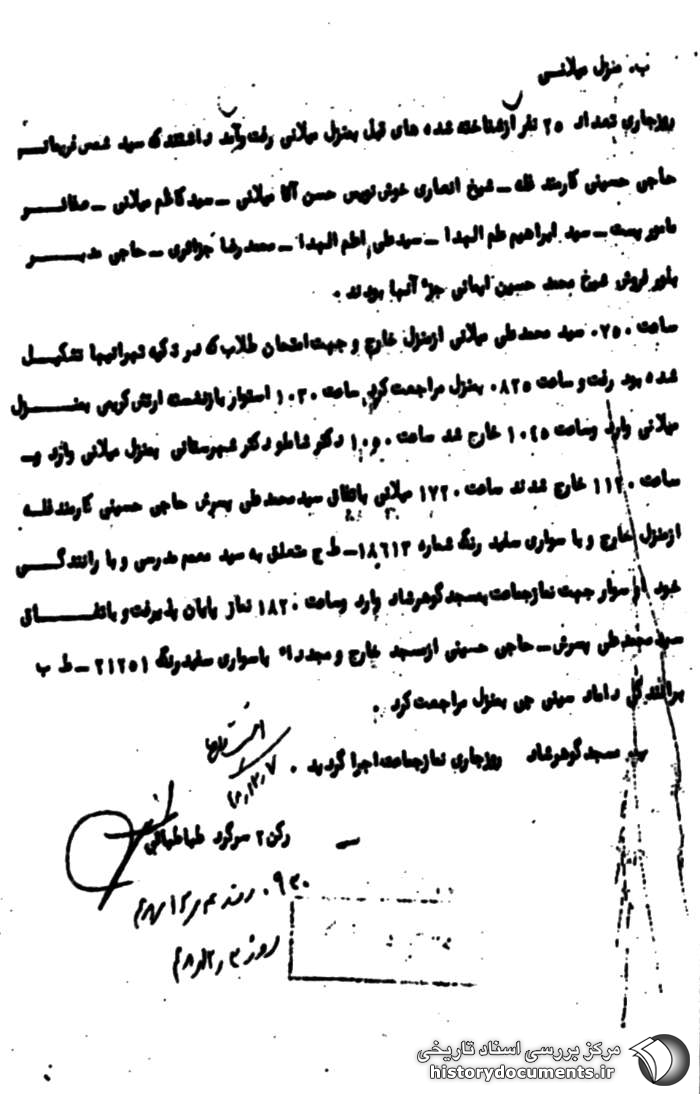 ب. منزل میلانی
روزجاری تعداد ۲۵ نفر ازشناخته شده های قبل بمنزل میلانی رفت وآمد داشتند که سید شمس فریمانی
حاجی حسینی کارمند قله ـ شیخ انصاری خوش نویس حسن آقا میلانی ـ سیدکاظم میلانی ـ صفائر
مامور پست ـ سید ابراهیم علم الهدا ـ سیدعلی علم الهدا ـ محمد رضا جزائری ـ حاجی مدبر
بلور فروش شیخ محمد حسین ایمانی جزء آنها بودند .
ساعت ۰۷۵۰ سید محمد علی میلانی ازمنزل خارج و جهت امتحان طلاب که در تکیه تهرانیها تشکیل
شده بود رفت و ساعت ۰۸۲۵ بمنزل مراجعت کرد ساعت ۱۰۲۰ استوار بازنشسته ارتش کریمی بمنزل
میلانی وارد وساعت ۱۰۴۵ خارج شد ساعت دکتر شاملو دکتر شهرستانی بمنزل میلانی وارد و
ساعت ۱۱۲۰ خارج شدند ساعت ۱۷۲۰ میلانی باتفاق سیدمحمدعلی پسرش حاجی حسینی کارمند قله
ازمنزل خارج و با سواری سفید رنگ شماره ۱۸۶۱۳ ـ ط ج متعلق به سید معمم مدرسی و با رانندگی
خود سوار جهت نمازجماعت بمسجد گوهرشاد وارد وساعت ۱۸۲۰ نماز پایان پذیرفت و باتفاق
سید محمد علی پسرش ـ حاجی حسینی ازمسجد خارج و مجدداً باسواری سفید رنگ ۲۱۲۵۱ ـ ط ب
برانندگی داماد سینی چی بمنزل مراجعت کرد .
مسجد گوهرشاد روزجاری نمازجماعت اجرا گردید .
۴۸٫۱۲٫۷
رکن ۲ سرگرد طباطبائی
۰۹۲۰
روز
مرکز بررسی اسناد تاریخی
historydocuments.ir